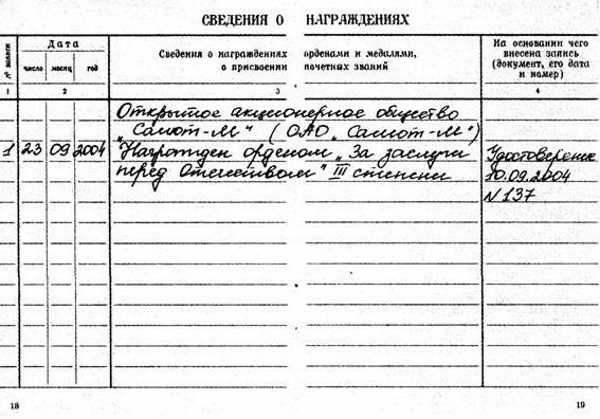 СВЕДЕНИЯ О НАГРАЖДЕНИЯХ
№ записи
Дата
число
месяц
год
Сведения о награждениях орденами и медалями,
о присвоении почетных званий
На основании чего
внесена запись
(документ, его дата
и номер)
1 2 3 4
Открытое акционерное общество
„Салют-М" (ОАО „Салют-М")
1 23 09 2004 Награжден орденом „За заслуги Удостоверение
перед Отечеством" III степени 10.09.2004
N 137
18 19